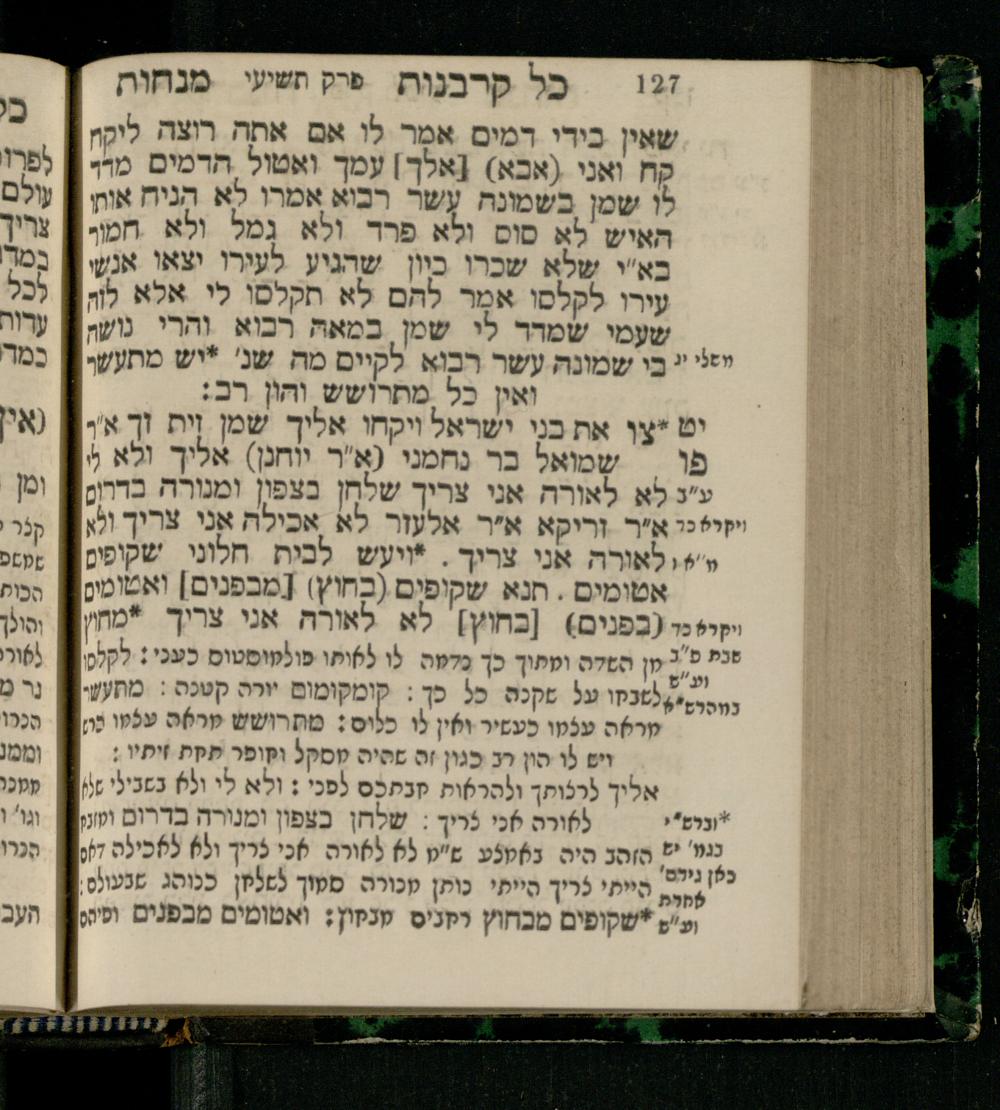 127 כל קרבנות פרק תשיעי מנחות
שאין בידי דמים אמר לו אם אתה רוצה ליקח
קח ואני (אבא) [אלך] עמך ואטול הדמים מדד
לו שמן בשמונה עשר רבוא אמרו לא הניח אותו
האיש לא סוס ולא פרד ולא גמל ולא חמור
בא"י שלא שכרו כיון שהגיע לעירו יצאו אנשי
עירו לקלסו אמר להם לא תקלסו לי אלא לזה
שעמי שמדד לי שמן במאה רבוא והרי נושה
משלי יג בי שמונה עשר רבוא לקיים מה שנ' *יש מתעשר
ואין כל מתרושש והון רב:
יט *צו את בני ישראל ויקחו אליך שמן זית זך א"ר
פו שמואל בר נחמני (א"ר יוחנן) אליך ולא לי
ע"ב לא לאורה אני צריך שלחן בצפון ומנורה בדרום
ויקרא כד א"ר זריקא א"ר אלעזר לא אכילה אני צריך ולא
מ"א ו לאורה אני צריך. *ויעש לבית חלוני שקופים
אטומים. תנא שקופים (בחוץ) [מבפנים] ואטומים
ויקרא כד (בפנים) [בחוץ] לא לאורה אני צריך *מחוץ
שבת פ"ב מן השדה ומתוך כך נדמה לו לאותו פולמוסטוס כעני: לקלסו
וע"ש
במהרש"א לשבחו על שקנה כל כך: קומקומום יורה קטנה: מתעשר
מראה עצמו כעשיר ואין לו כלום: מתרושש מראה עצמו כרש
ויש לו הון רב כגון זה שהיה מסקל וחופר תחת זיתיו:
אליך לרצותך ולהראות חבתכם לפני: ולא לי ולא בשבילי שלא
*וברש"י לאורה אני צריך: שלחן בצפון ומנורה בדרום ומזבח
בגמ' יש הזהב היה באמצע ש"מ לא לאורה אני צריך ולא לאכילה דאם
כאן גירס' הייתי צריך הייתי נותן מנורה סמוך לשלחן כנוהג שבעולם:
אחרת
וע"ש *שקופים מבחוץ רחבים מבחוץ: ואטומים מבפנים ופיהם